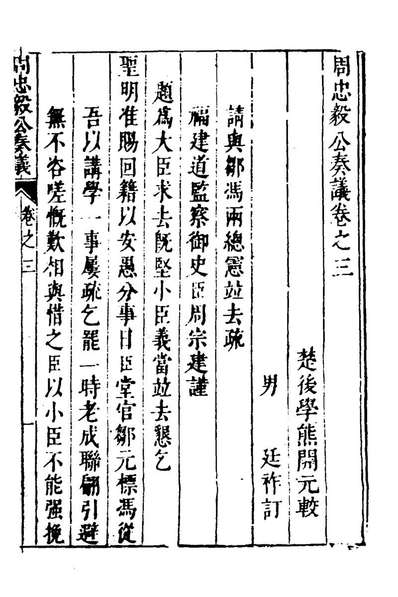 周忠毅公奏議卷之三
楚後學熊開元較
男 廷祚訂
請與鄒馮兩總憲竝去疏
福建道監察御史臣周宗建謹
題爲大臣求去旣堅小臣義當竝去懇乞
聖明准賜回籍以安愚分事日臣堂官鄒元標馮從
吾以講學一事屢疏乞罷一時老成聯翩引避
無不咨嗟慨歎相與惜之臣以小臣不能強挽
周忠毅公奏議
卷之三
一